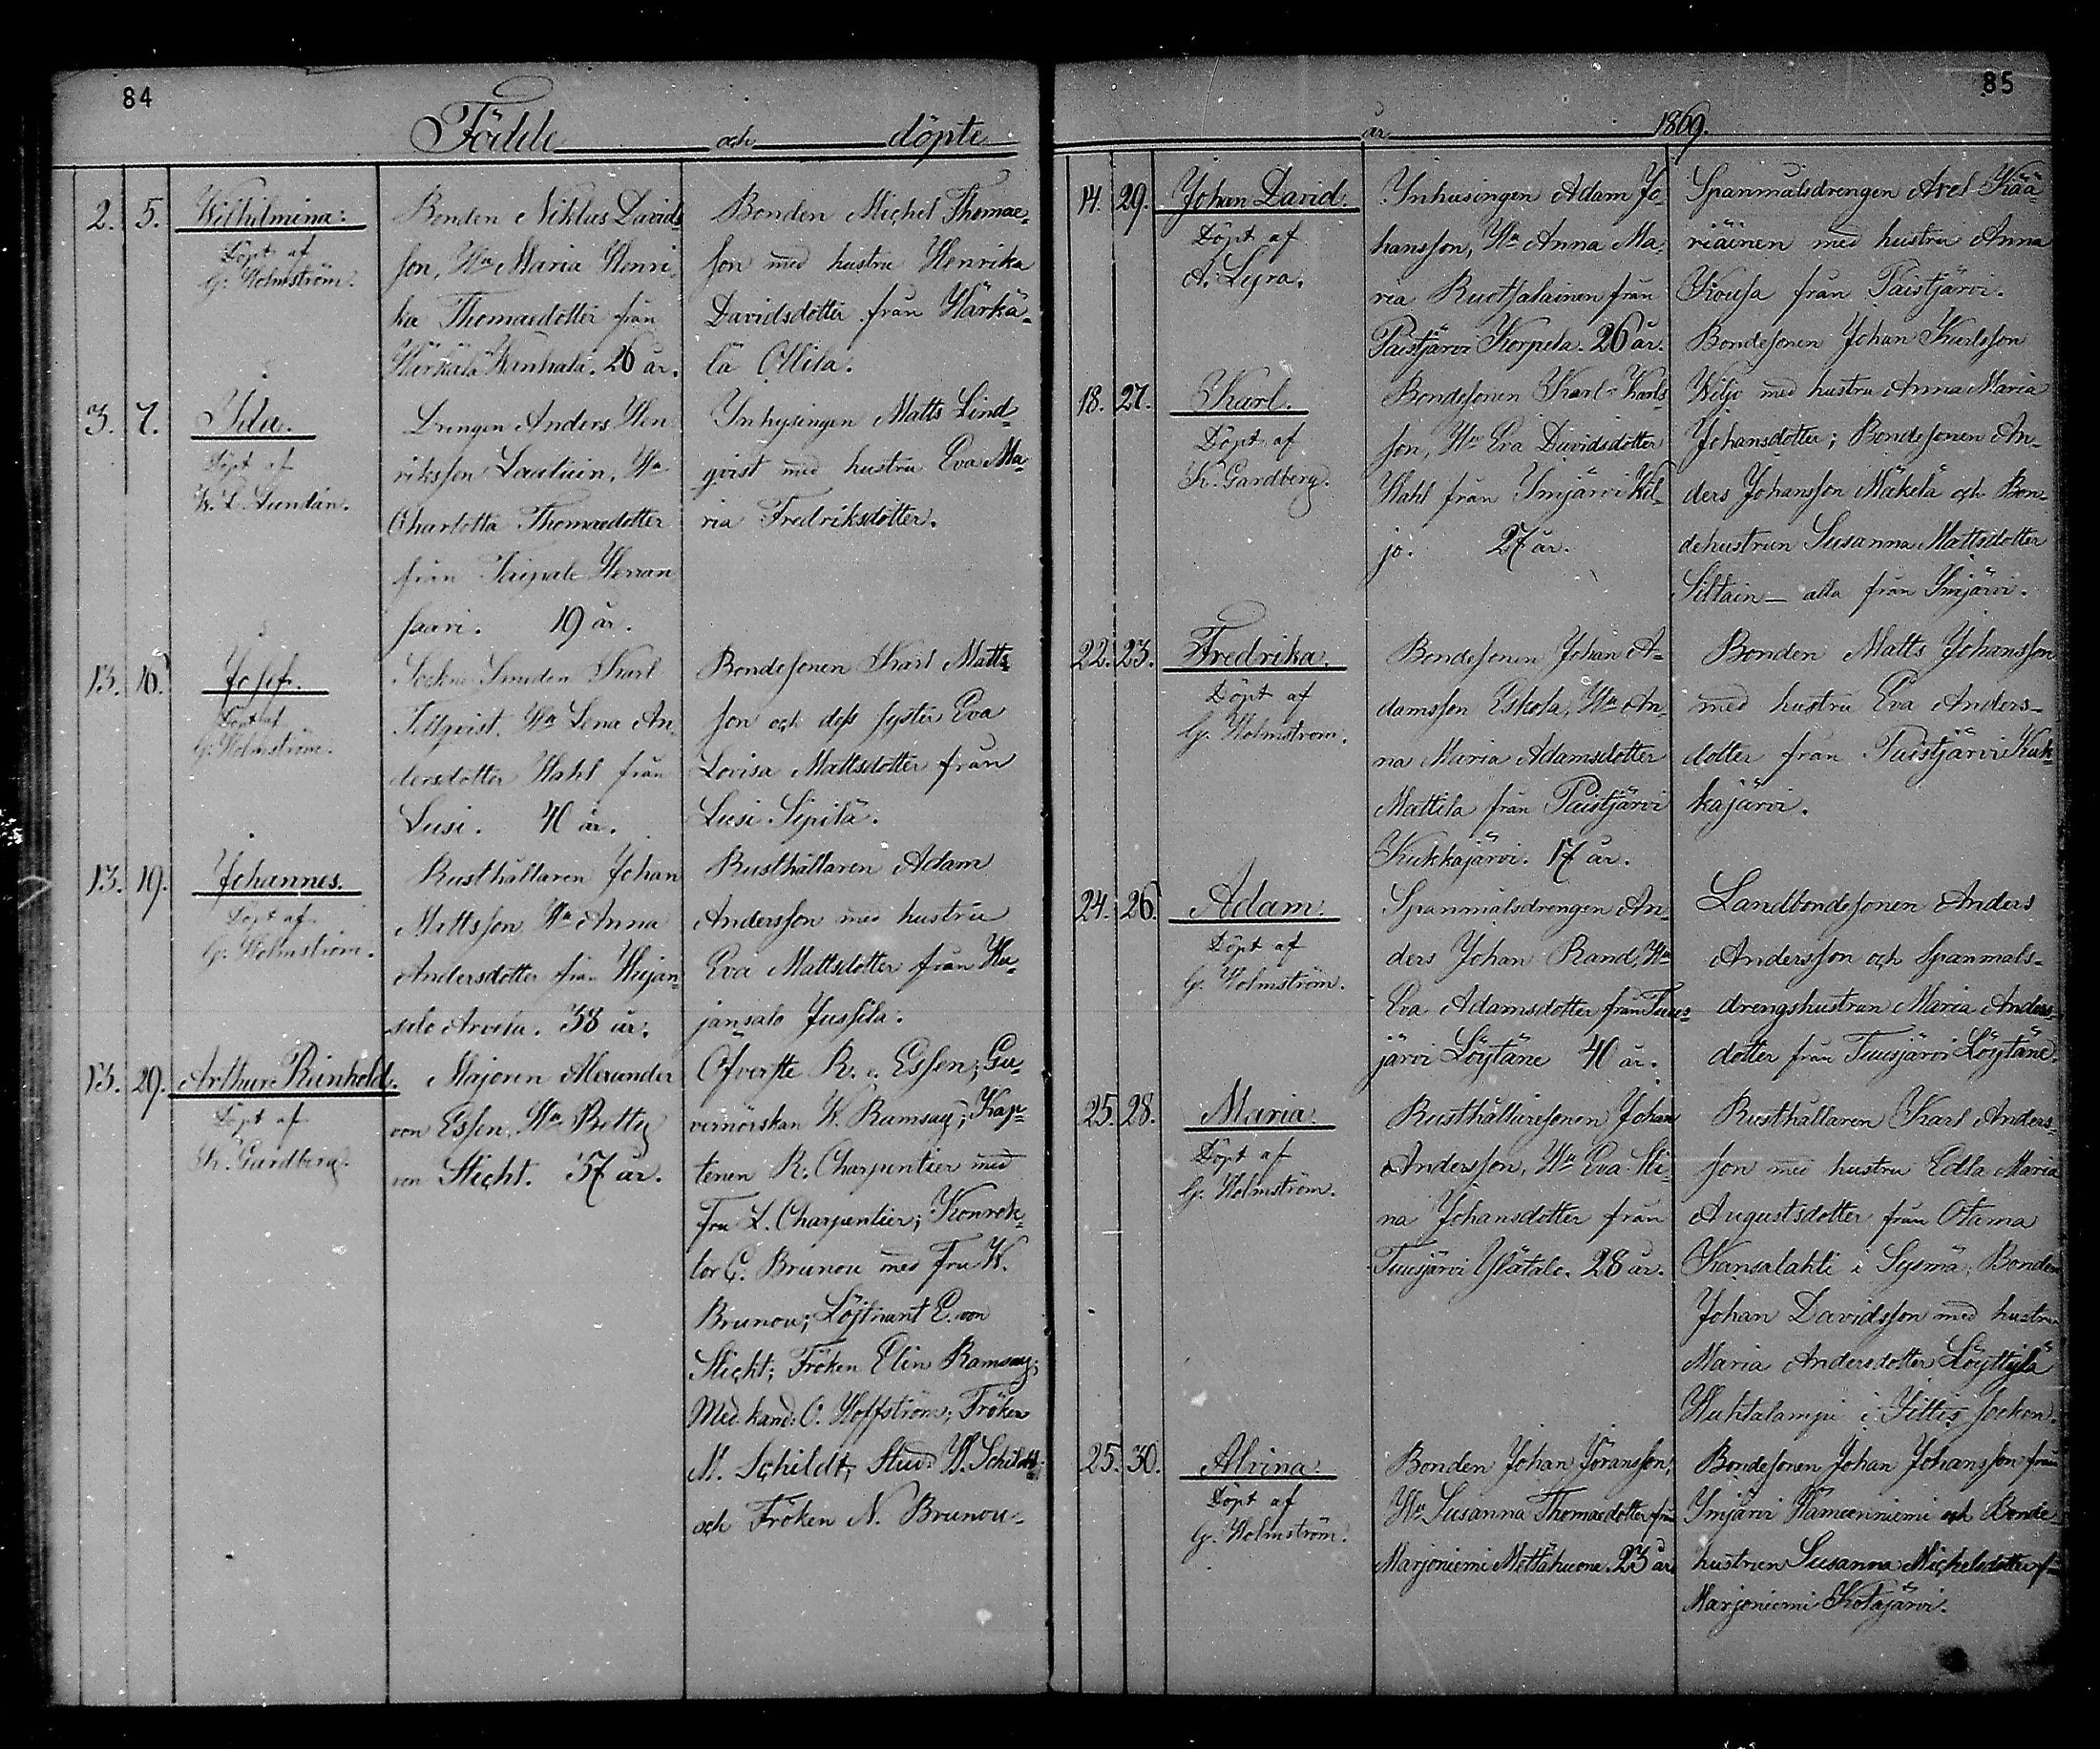 84
Födde och döpte
2. 5. Wilhelmina.
Döpt af
G. Holmström.
Bonden Niklas Davids
son, Hu Maria Henri-
ka Thomasdotter från
Härkälä Wanhala. 26 år.
Bonden Michel Thomas-
son med hustru Henrika
Davidsdotter från Härkä-
lä Ollila.
3. 7. Ida.
Döpt af
Drengen Anders Hen
riksson Lautiain, Hu
Charlotta Thomasdotter
från Taipale Herran
saari. 19 år.
Inhysingen Matts Lind-
qvist med hustru Eva Ma-
ria Fredriksdotter.
13. 16. Josef.
Döpt af
G. Holmström.
Sockne Smeden Karl
Tillqvist, Hu Lena An-
dersdotter Stahl från
Lusi. 40 år.
Bondesonen Karl Matts-
son och dess syster Eva
Lovisa Mattsdotter från
Lusi Sipilä.
13. 19. Johannes.
Döpt af
G. Holmström.
Rusthållaren Johan
Mattsson, Hu Anna
Andersdotter från Hujan-
salo Arvela. 38 år.
Rusthållaren Adam
Andersson med hustru
Eva Mattsdotter från Hu-
jansalo Jussila.
13. 29. Arthur Reinhold.
Döpt af
K. Gardberg.
Majoren Alexander
von Essen, Hu Betty
von Slicht. 37 år.
Öfverste R. v. Essen; Gu-
vernörskan W. Ramsay; Kap-
tenen R. Charpentier med
Fru L. Charpentier; Konrek-
tor G. Brunou med Fru W.
Brunou; Löjtnant E. von
Slicht; Fröken Elin Ramsay;
Med. kand: O. Hoffström; Fröken
M. Schildt; Stud. W. Schildt
och Fröken N. Brunou.
85
år 1869.
14. 29. Johan David.
Döpt af
A. Lyra.
Inhusingen Adam Jo-
hansson, Hu Anna Ma-
ria Ruotsalainen från
Paistjärvi Korpela. 26 år.
Spanmålsdrengen Axel Kää-
riäinen med hustru Anna
Kousa från Paistjärvi.
18. 27. Karl.
Döpt af
K. Gardberg.
Bondesonen Karl Karls-
son, Hu Eva Davidsdotter
Stahl från Imjärvi Wil-
jo. 27 år.
Bondesonen Johan Karlsson
Wiljo med hustru Anna Maria
Johansdotter; Bondesonen An-
ders Johansson Mäkelä och Bon-
dehustrun Susanna Mattsdotter
Siltain – alla från Imjärvi.
22. 23. Fredrika.
Döpt af
G. Holmström.
Bondesonen Johan A-
damsson Eskola, Hu An-
na Maria Adamsdotter
Mattila från Paistjärvi
Kukkajärvi. 17 år.
Bonden Matts Johansson
med hustru Eva Anders-
dotter från Paistjärvi Kuk-
kajärvi.
24. 26. Adam.
Döpt af
G. Holmström.
Spanmålsdrengen An-
ders Johan Rand, Hu
Eva Adamsdotter från Tuus-
järvi Löytäne 40 år.
Landbondesonen Anders
Andersson och Spanmåls-
drengshustrun Maria Anders-
dotter från Tuusjärvi Löytäne.
25. 28. Maria.
Döpt af
G. Holmström.
Rusthållaresonen Johan
Andersson, Hu Eva Sti-
na Johansdotter från
Tuusjärvi Ylätalo. 28 år.
Rusthållaren Karl Anders-
son med hustru Edla Maria
Augustsdotter från Otama
Kansalahti i Sysmä; Bonden
Johan Davidsson med hustru
Maria Andersdotter Löyttylä
Huhtalampi i Jittis socken.
25. 30. Alvina.
Döpt af
G. Holmström.
Bonden Johan Göransson,
Hu Susanna Thomasdotter från
Marjoniemi 23 år
Bondesonen Johan Johansson från
Imjärvi Hämeenniemi och Bonde-
hustrun Susanna Michelsdotter fr
Marjoniemi Kotajärvi.